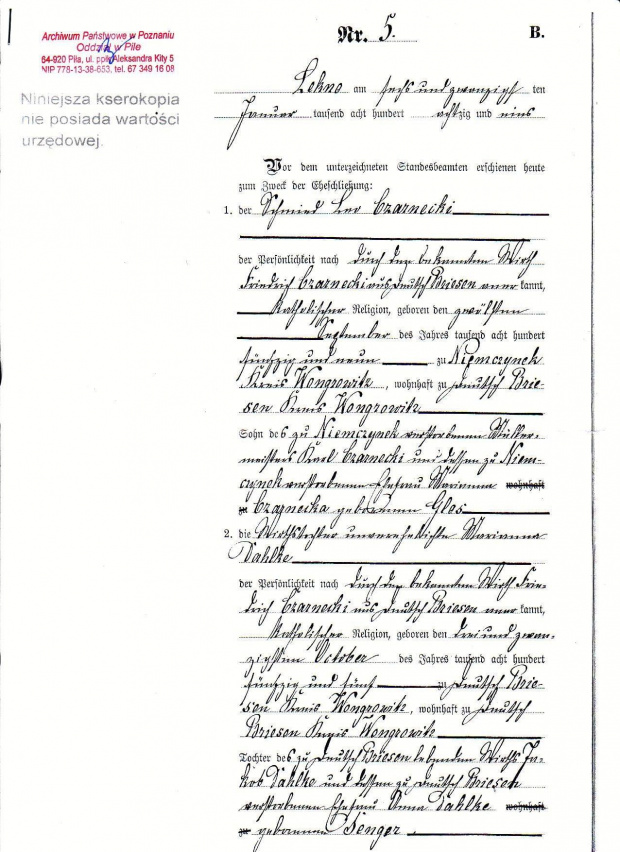 Archiwum Państwowe w Poznaniu
Oddział w Pile
64-920 Piła, ul. ppłk Aleksandra Kity 5
NIP 778-13-38-653, tel. 67 349 16 08
Niniejsza kserokopia
nie posiada wartości
urzędowej.
Nr. 5.
B.
Lekno am sechs und zwanzigst ten
Januar tausend acht hundert achtzig und eins
Vor dem unterzeichneten Standesbeamten erschienen heute
zum Zweck der Eheschließung:
1. der Schmied Leo Czarnecki
der Persönlichkeit nach durch den bekannten Wirth
Friedrich Czarnecki aus Deutsch Briesen aner kannt,
katholischer Religion, geboren den zwölften
September des Jahres tausend acht hundert
fünfzig und neun zu Niemczynek
Kreis Wongrowitz, wohnhaft zu Deutsch Brie-
sen Kreis Wongrowitz
Sohn des zu Niemczynek verstorbenen Müller-
meisters Karl Czarnecki und dessen zu Niem-
czynek verstorbenen Ehefrau Marianna wohnhaft
zu Czarnecka geborenen Glos
2. die Wirthstochter unverehelichte Marianna
Dahlke
der Persönlichkeit nach durch den bekannten Wirth Frie-
drich Czarnecki aus Deutsch Briesen aner kannt,
katholischer Religion, geboren den drei und zwan-
zigsten October des Jahres tausend acht hundert
fünfzig und fünf zu Deutsch Brie-
sen Kreis Wongrowitz, wohnhaft zu Deutsch
Briesen Kreis Wongrowitz
Tochter des zu Deutsch Briesen lebenden Wirths Ja-
kob Dahlke und dessen zu Deutsch Briesen
verstorbenen Ehefrau Anna Dahlke wohnhaft
zu geborenen Senger